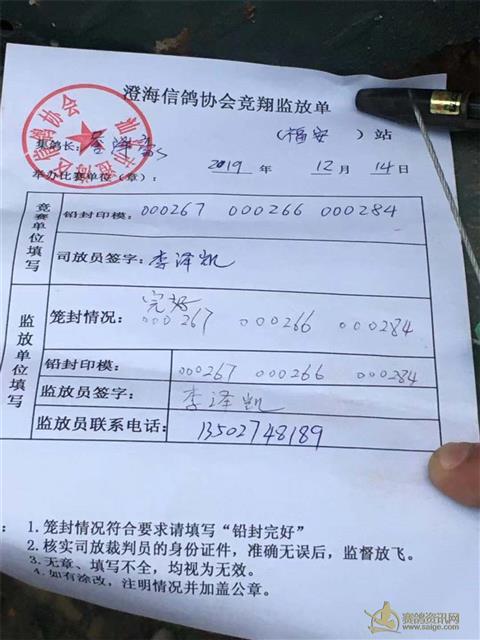 澄海信鸽协会竞翔监放单
集鸽长： （福安）站
举办比赛单位（章）： 2019 年 12 月 14 日
竞赛单位填写
铅封印模：000267 000266 000284
司放员签字：李泽凯
监放单位填写
完好
笼封情况：000267 000266 000284
铅封印模：000267 000266 000284
监放员签字：李泽凯
监放员联系电话：13502748189
：1.笼封情况符合要求请填写“铅封完好”
2.核实司放裁判员的身份证件，准确无误后，监督放飞。
3.无章、填写不全，均视为无效。
4.如有涂改，注明情况并加盖公章。
赛鸽资讯网
www.saige.com